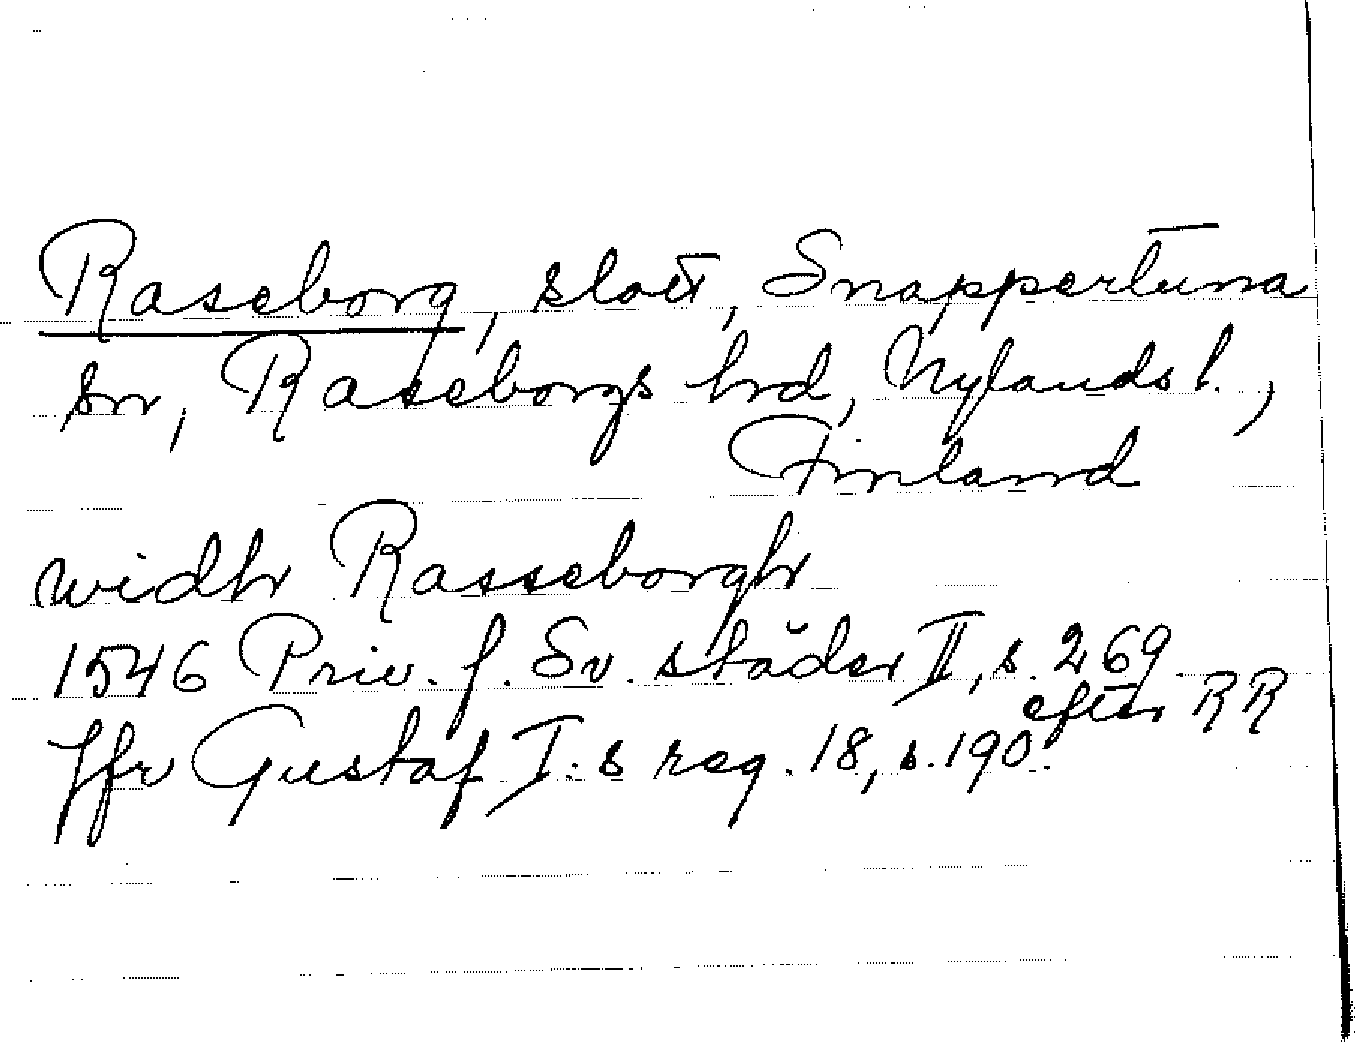 Raseborg, slott, Snappertuna
sn, Raseborgs hrd, Nylands l.,
Finland
widh Rasseborgh
1546 Priv. f. Sv. städer II, s. 269
efter RR
Jfr Gustaf I.s reg. 18, s. 190.